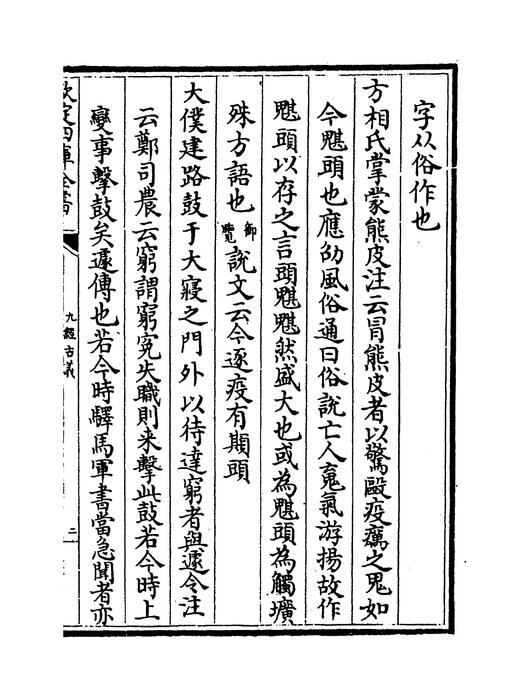 字从俗作也
方相氏掌蒙熊皮注云冒熊皮者以驚敺疫癘之鬼如
今魌頭也應劭風俗通曰俗說亡人魂氣游揚故作
魌頭以存之言頭魌魌然盛大也或為魌頭為觸壙
殊方語也御覽說文云今逐疫有䫏頭
大僕建路鼓于大寢之門外以待達窮者與遽令注
云鄭司農云窮謂窮冤失職則来擊此鼓若今時上
變事擊鼓矣遽傳也若今時驛馬軍書當急聞者亦
欽定四庫全書
九經古義